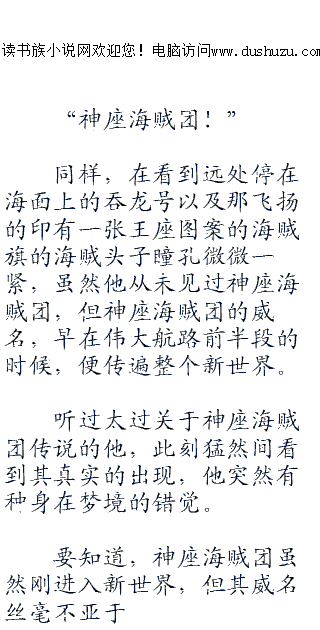 读书族小说网欢迎您！电脑访问www.dushuzu.com
“神座海贼团！”
同样，在看到远处停在
海面上的吞龙号以及那飞扬
的印有一张王座图案的海贼
旗的海贼头子瞳孔微微一
紧，虽然他从未见过神座海
贼团，但神座海贼团的威
名，早在伟大航路前半段的
时候，便传遍整个新世界。
听过太过关于神座海贼
团传说的他，此刻猛然间看
到其真实的出现，他突然有
种身在梦境的错觉。
要知道，神座海贼团虽
然刚进入新世界，但其威名
丝毫不亚于